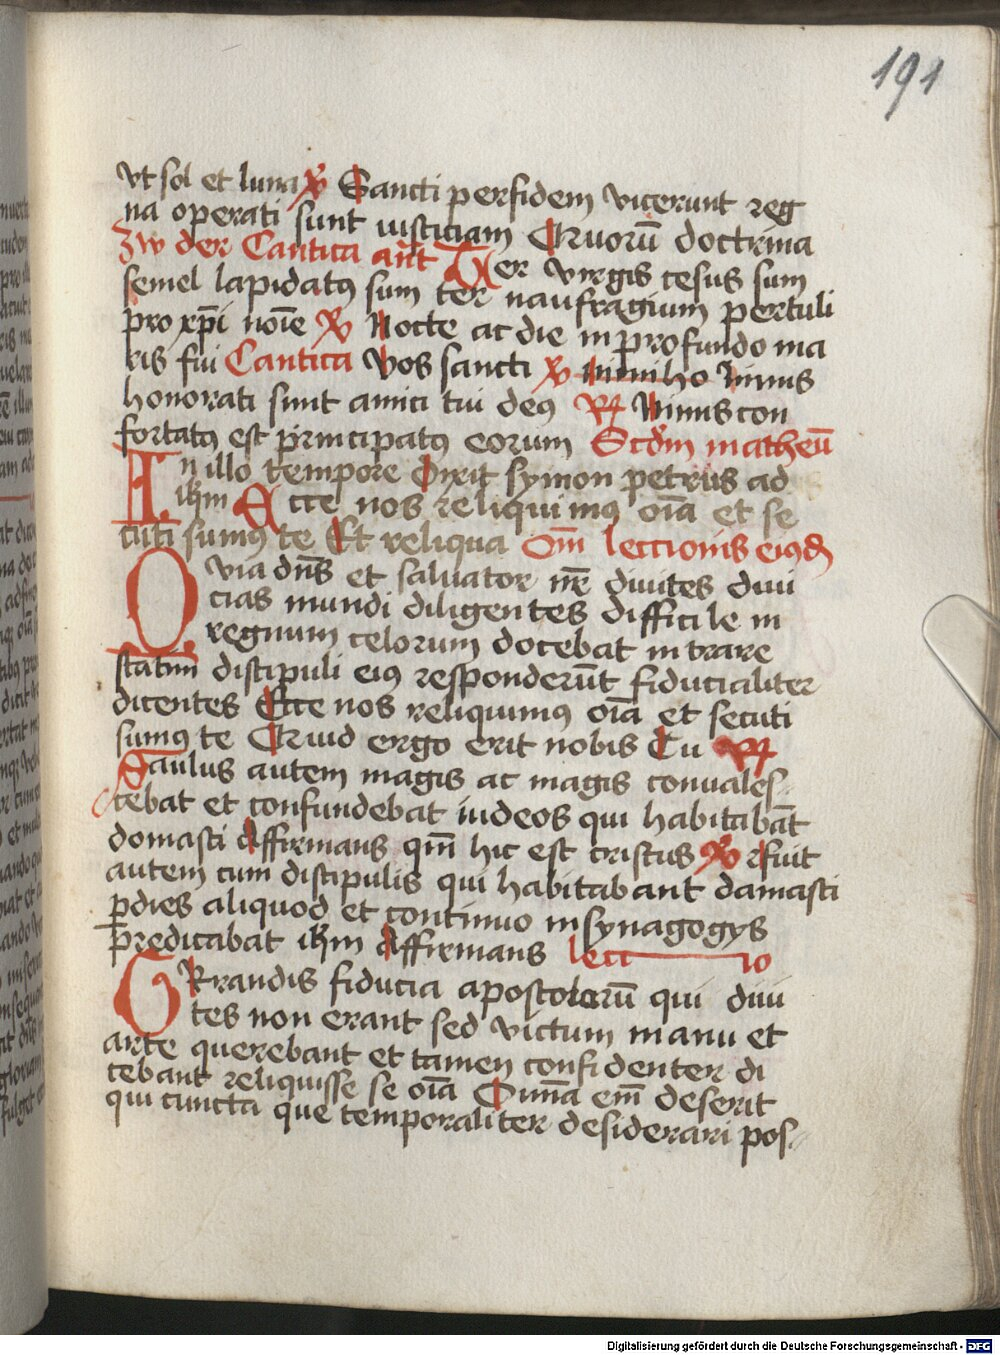 191
vt sol et luna ℣ Sancti per fidem vicerunt reg
na operati sunt iusticiam Quorū doctrina
Zw der Cantica an̄t Ter virgis cesus sum
semel lapidatꝯ sum ter naufragium pertuli
pro xp̄i noīe ℣ Nocte ac die in profundo ma
ris fui Cantica Vos sancti ℣ Nimis
honorati sunt amici tui deꝯ ℟ Nimis con
fortatꝯ est principatꝯ eorum Scdm̄ matheū
In illo tempore Dixit symon petrus ad
ihm̄ Ecce nos reliquimꝯ oīa et se
cuti sumꝯ te Et reliqua Om̄ lectionis eiꝯd
Quia dn̄s et saluator nr̄ diuites diui
cias mundi diligentes difficile in
regnum celorum docebat intrare
statim discipuli eiꝯ responderūt fiducialiter
dicentes Ecce nos reliquimꝯ oīa et secuti
sumꝯ te Quid ergo erit nobis Tu ℟
Saulus autem magis ac magis conuales
cebat et confundebat iudeos qui habitabāt
domasci Affirmans qm̄ hic est cristus ℣ Fuit
autem cum discipulis qui habitabant damasci
ꝑ dies aliquod et continuo in synagogys
predicabat ihm̄ Affirmans lectio
GRrandis fiducia apostolorū qui diui
tes non erant sed victum manu et
arte querebant et tamen confidenter di
cebant reliquisse se oīa Om̄ia em̄ deserit
qui cuncta que temporaliter desiderari pos
Digitalisierung gefördert durch die Deutsche Forschungsgemeinschaft - DFG